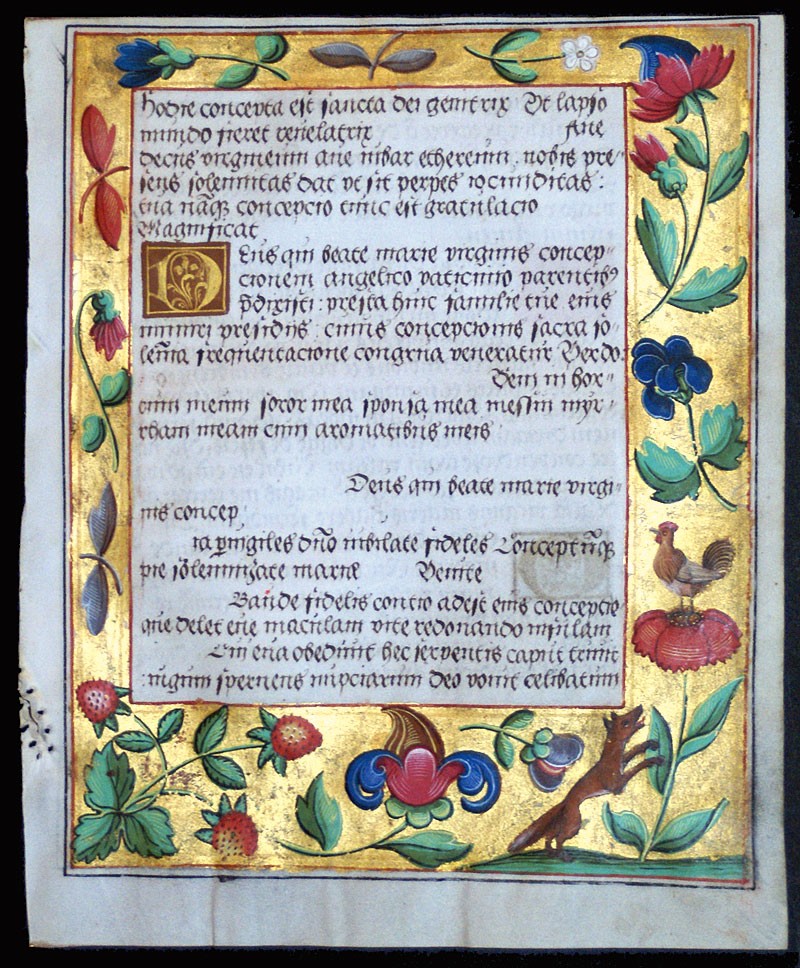 hodie concepta est sancta dei genitrix Vt lapso
mundo fieret revelatrix Aue
decus virgineum aue iubar ethereum : nobis pre-
sens solemnitas dat vt sit perpes iocunditas :
tua nāq̄ concepcio tunc est gratulacio
Magnificat
DEus qui beate marie virginis concep-
cionem angelico vaticinio parentibꝰ
p̄dixisti : presta huic familie tue eius
muniri presidiis : cuius concepcionis sacra so-
lēnia frequentacione congrua veneratur Per do:
Veni in hor-
tum meum soror mea sponsa mea messui myr-
rham meam cum aromatibus meis
Deus qui beate marie virgi-
nis concep
ta ꝑuigiles dn̄o iubilate fideles Conceptūq̄
pie solemnizate marie Venite
Gaude fidelis concio adest eius concepcio
que delet eue maculam vite redonando
Cui eua obediuit hec serpentis caput triuit
iugum spernens nupciarum deo vouit celibatum